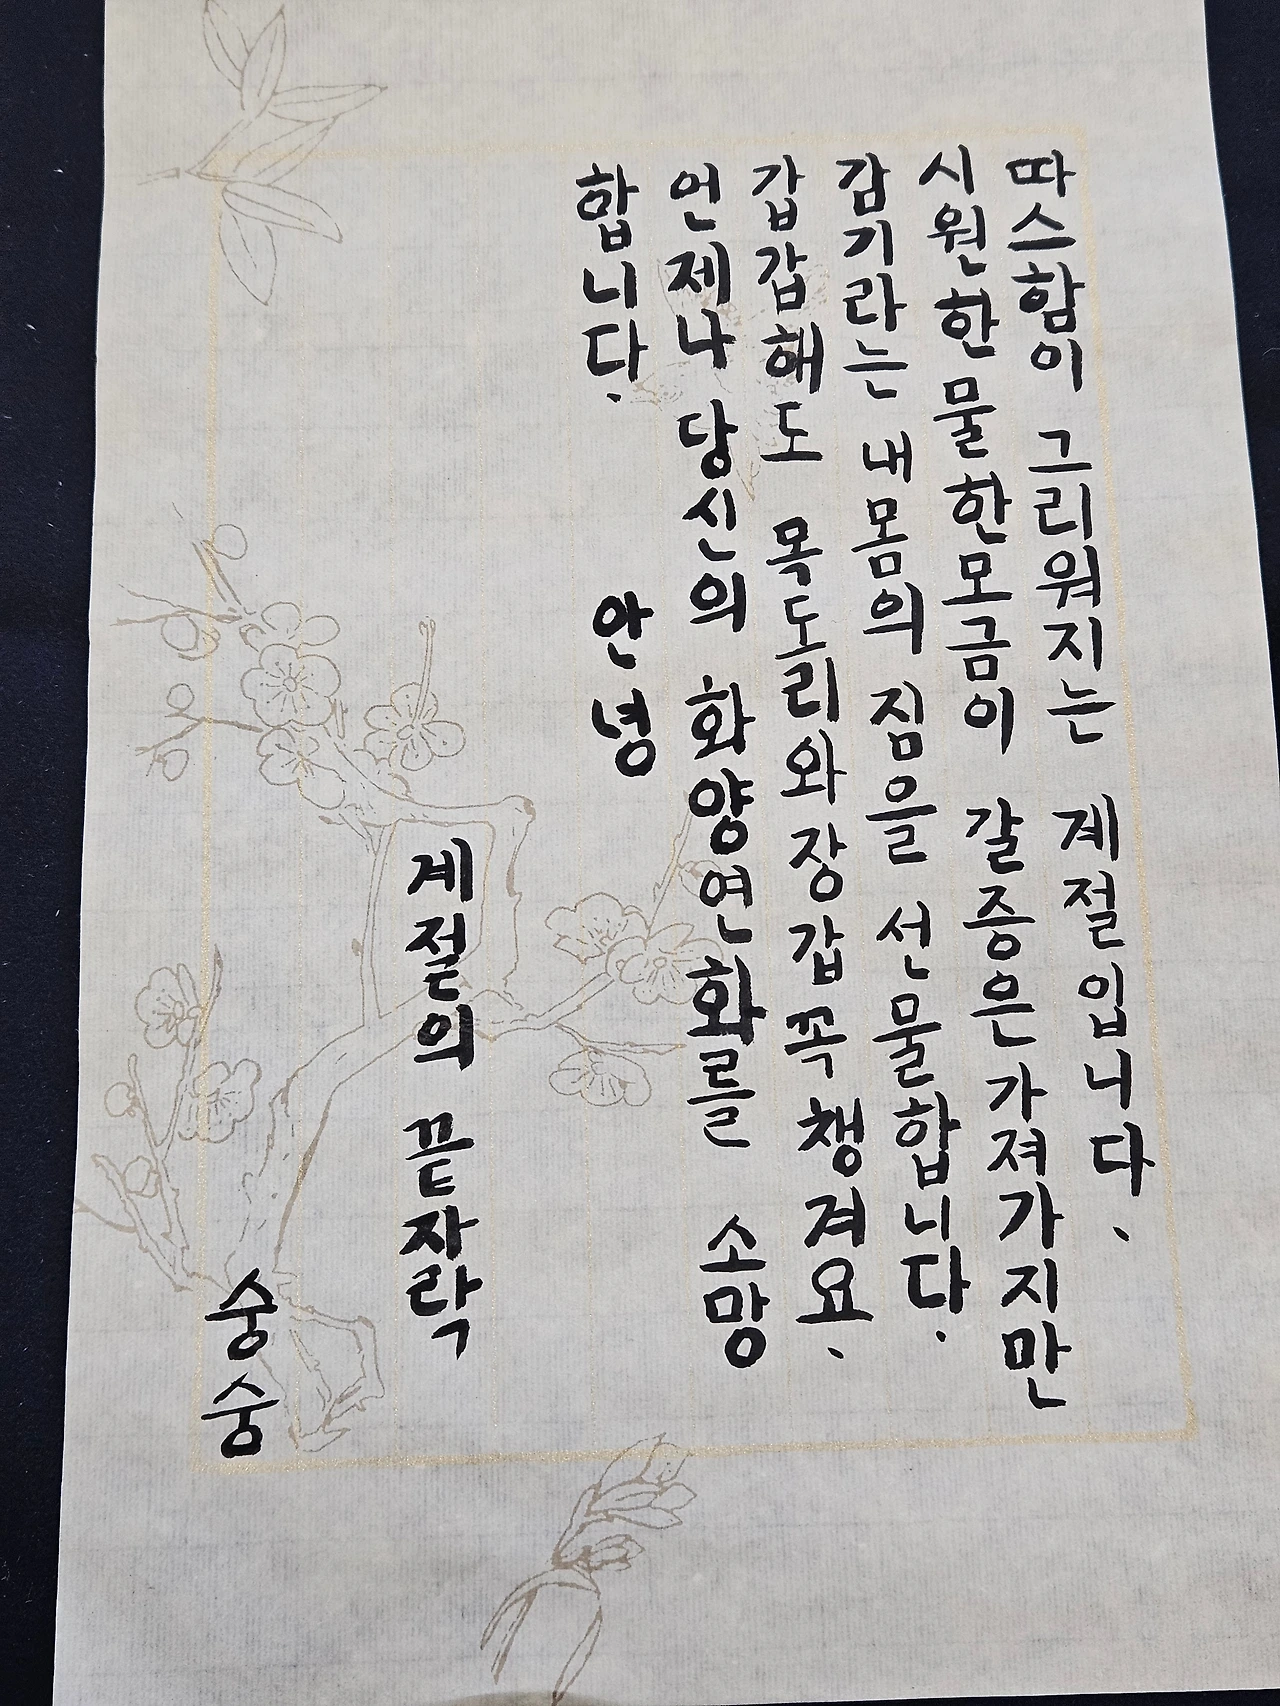 따스함이 그리워지는 계절입니다.
시원한 물 한모금이 갈증은 가져가지만
감기라는 내몸의 짐을 선물합니다.
갑갑해도 목도리와 장갑 꼭 챙겨요.
언제나 당신의 화양연화를 소망
합니다.
안녕
계절의 끝자락
숭숭